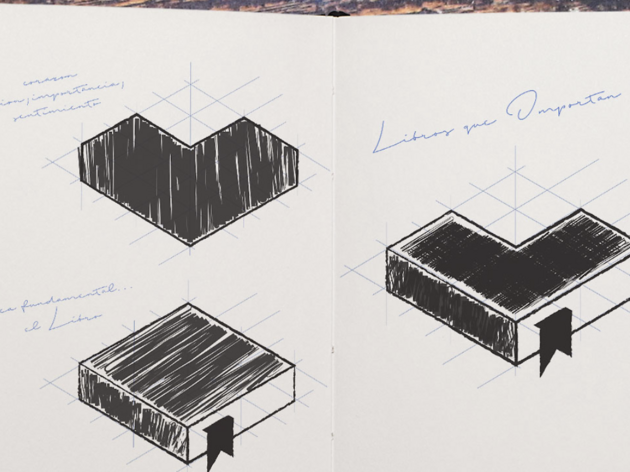 corazon
importancia,
sentimiento
fundamental...
el Libro
Libros que Importan